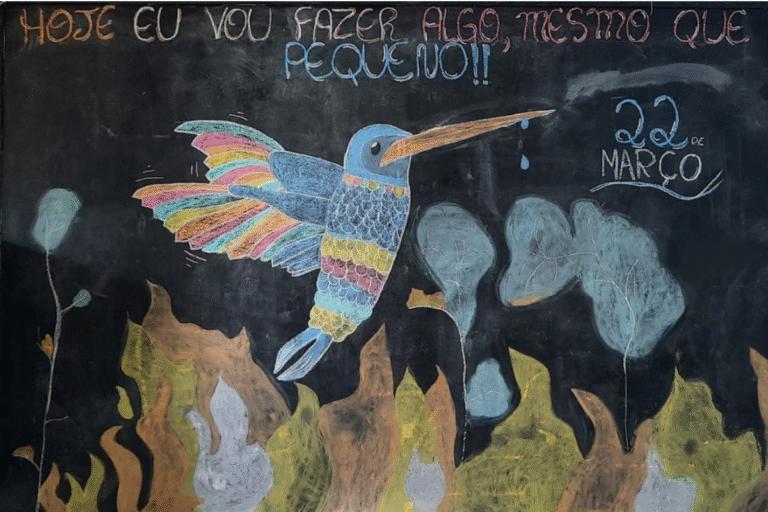 HOJE EU VOU FAZER ALGO, MESMO QUE
PEQUENO!!
22 DE
MARÇO